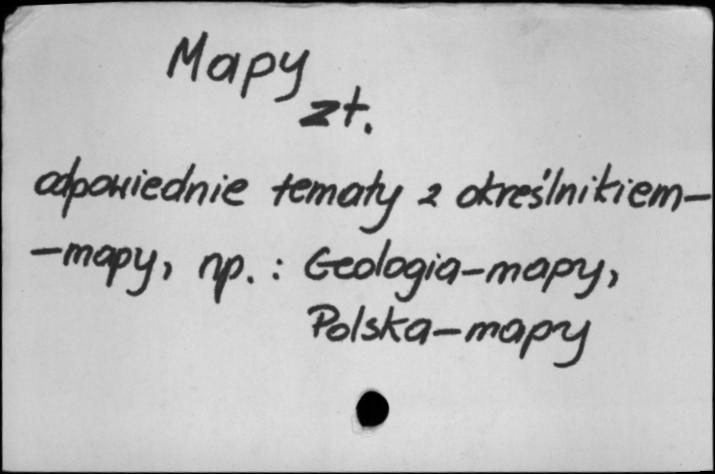 Mapy
zt.
odpowiednie tematy z określnikiem-
-mapy, np.: Geologia-mapy,
Polska-mapy